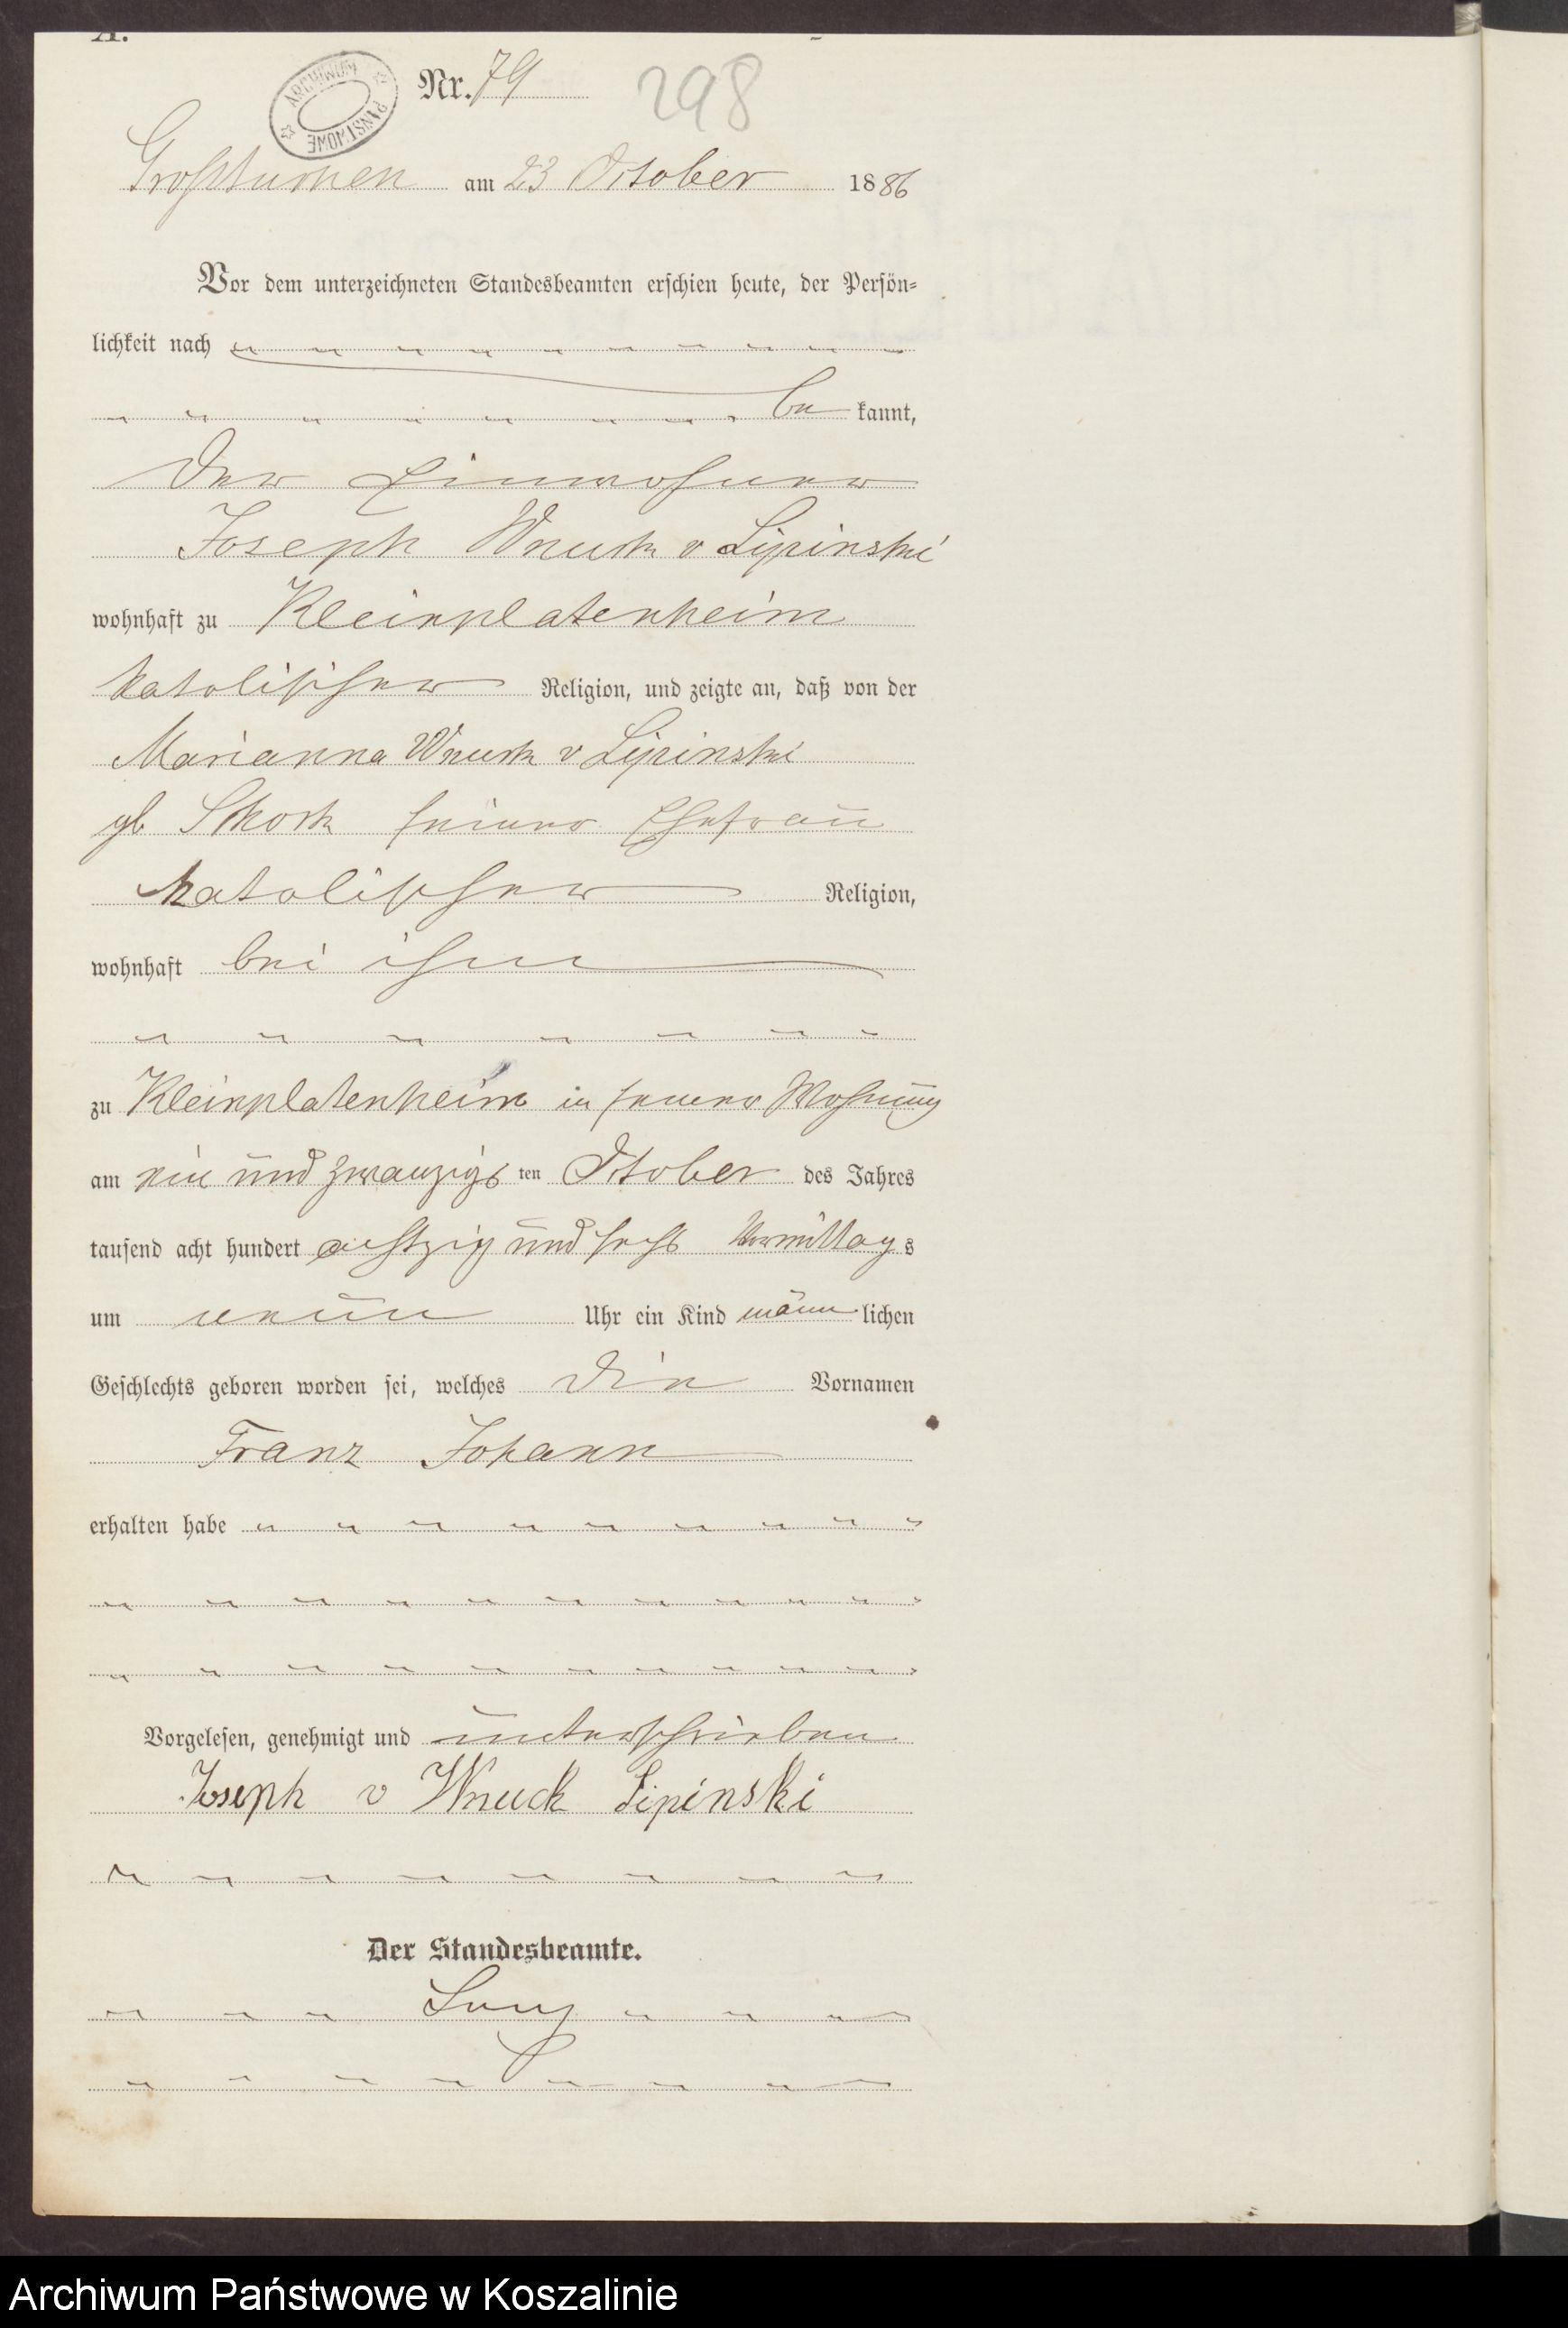 A.
ARCHIWUM PAŃSTWOWE
Nr. 79
298
Großtuchen am 23 October 1886
Vor dem unterzeichneten Standesbeamten erschien heute, der Persön-
lichkeit nach
be kannt,
der Einwohner
Joseph Wnuck v Lipinski
wohnhaft zu Kleinplatenheim
katolischer Religion, und zeigte an, daß von der
Marianna Wnuck v Lipinski
gb seiner Ehefrau
katolischer Religion,
wohnhaft bei ihm
zu Kleinplatenheim in seiner Wohnung
am ein und zwanzigs ten October des Jahres
tausend acht hundert achtzig und sechs Vormittag s
um neun Uhr ein Kind männ lichen
Geschlechts geboren worden sei, welches die Vornamen
Franz Johann
erhalten habe
Vorgelesen, genehmigt und unterschrieben
Joseph v Wnuck Lipinski
Der Standesbeamte.
Archiwum Państwowe w Koszalinie